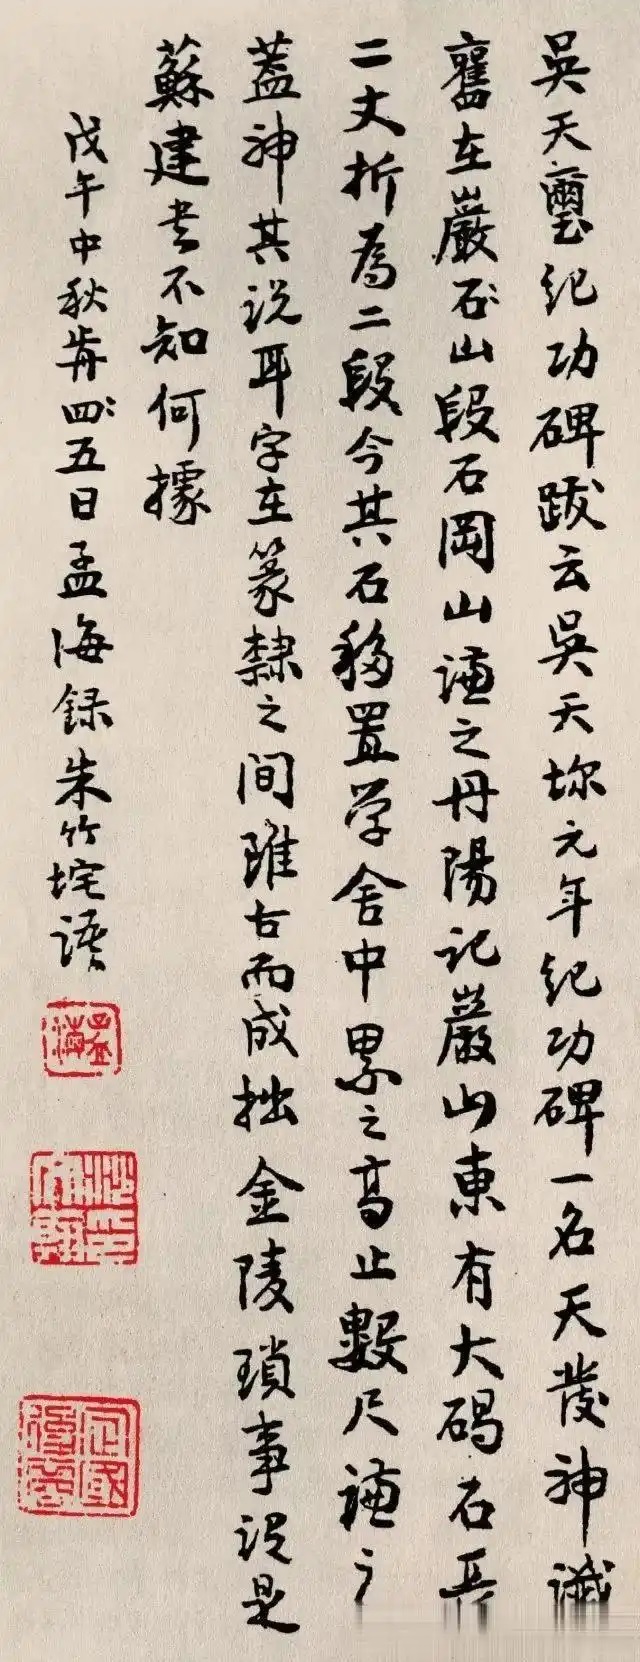 吳天璽紀功碑跋云吳天璽元年紀功碑一名天發神讖
舊在巖山段石岡山謙之丹陽記巖山東有大碣石長
二丈折為二段今其石移置学舍中累之高止數尺謙之
蓋神其说耳字在篆隸之间雖古而成拙金陵瑣事说是
蘇建书不知何據
戊午中秋前四五日孟海録朱竹垞語